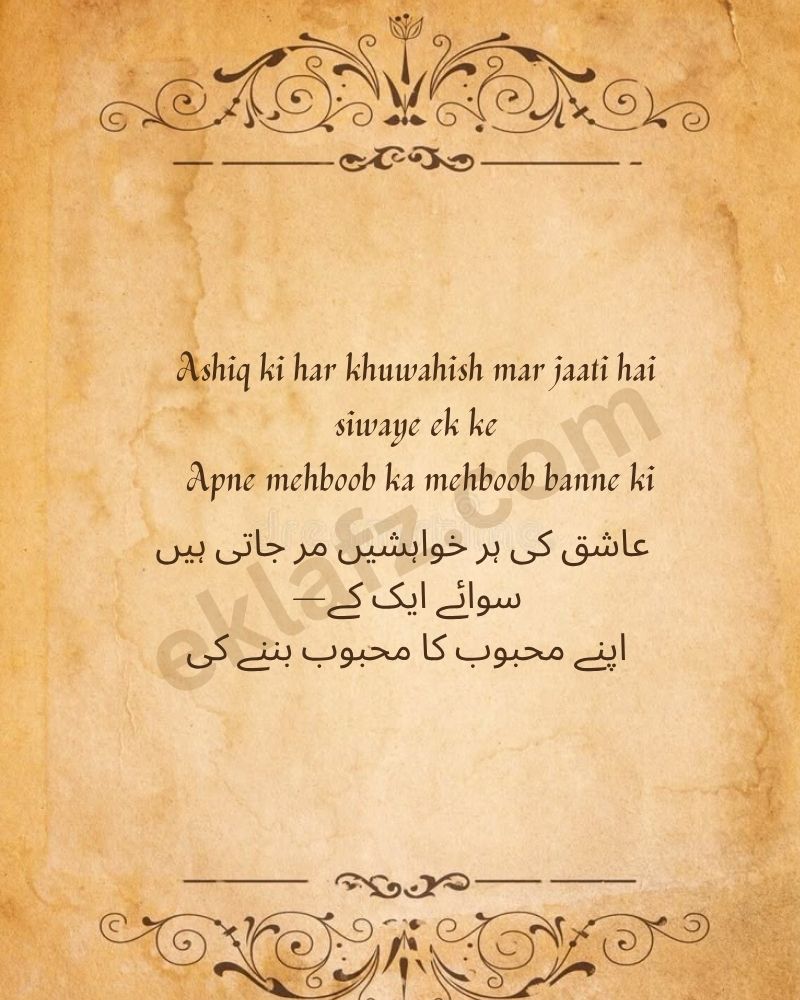 Ashiq ki har khuwahish mar jaati hai
siwaye ek ke
Apne mehboob ka mehboob banne ki
عاشق کی ہر خواہشیں مر جاتی ہیں
سوائے ایک کے—
اپنے محبوب کا محبوب بننے کی
eklafz.com